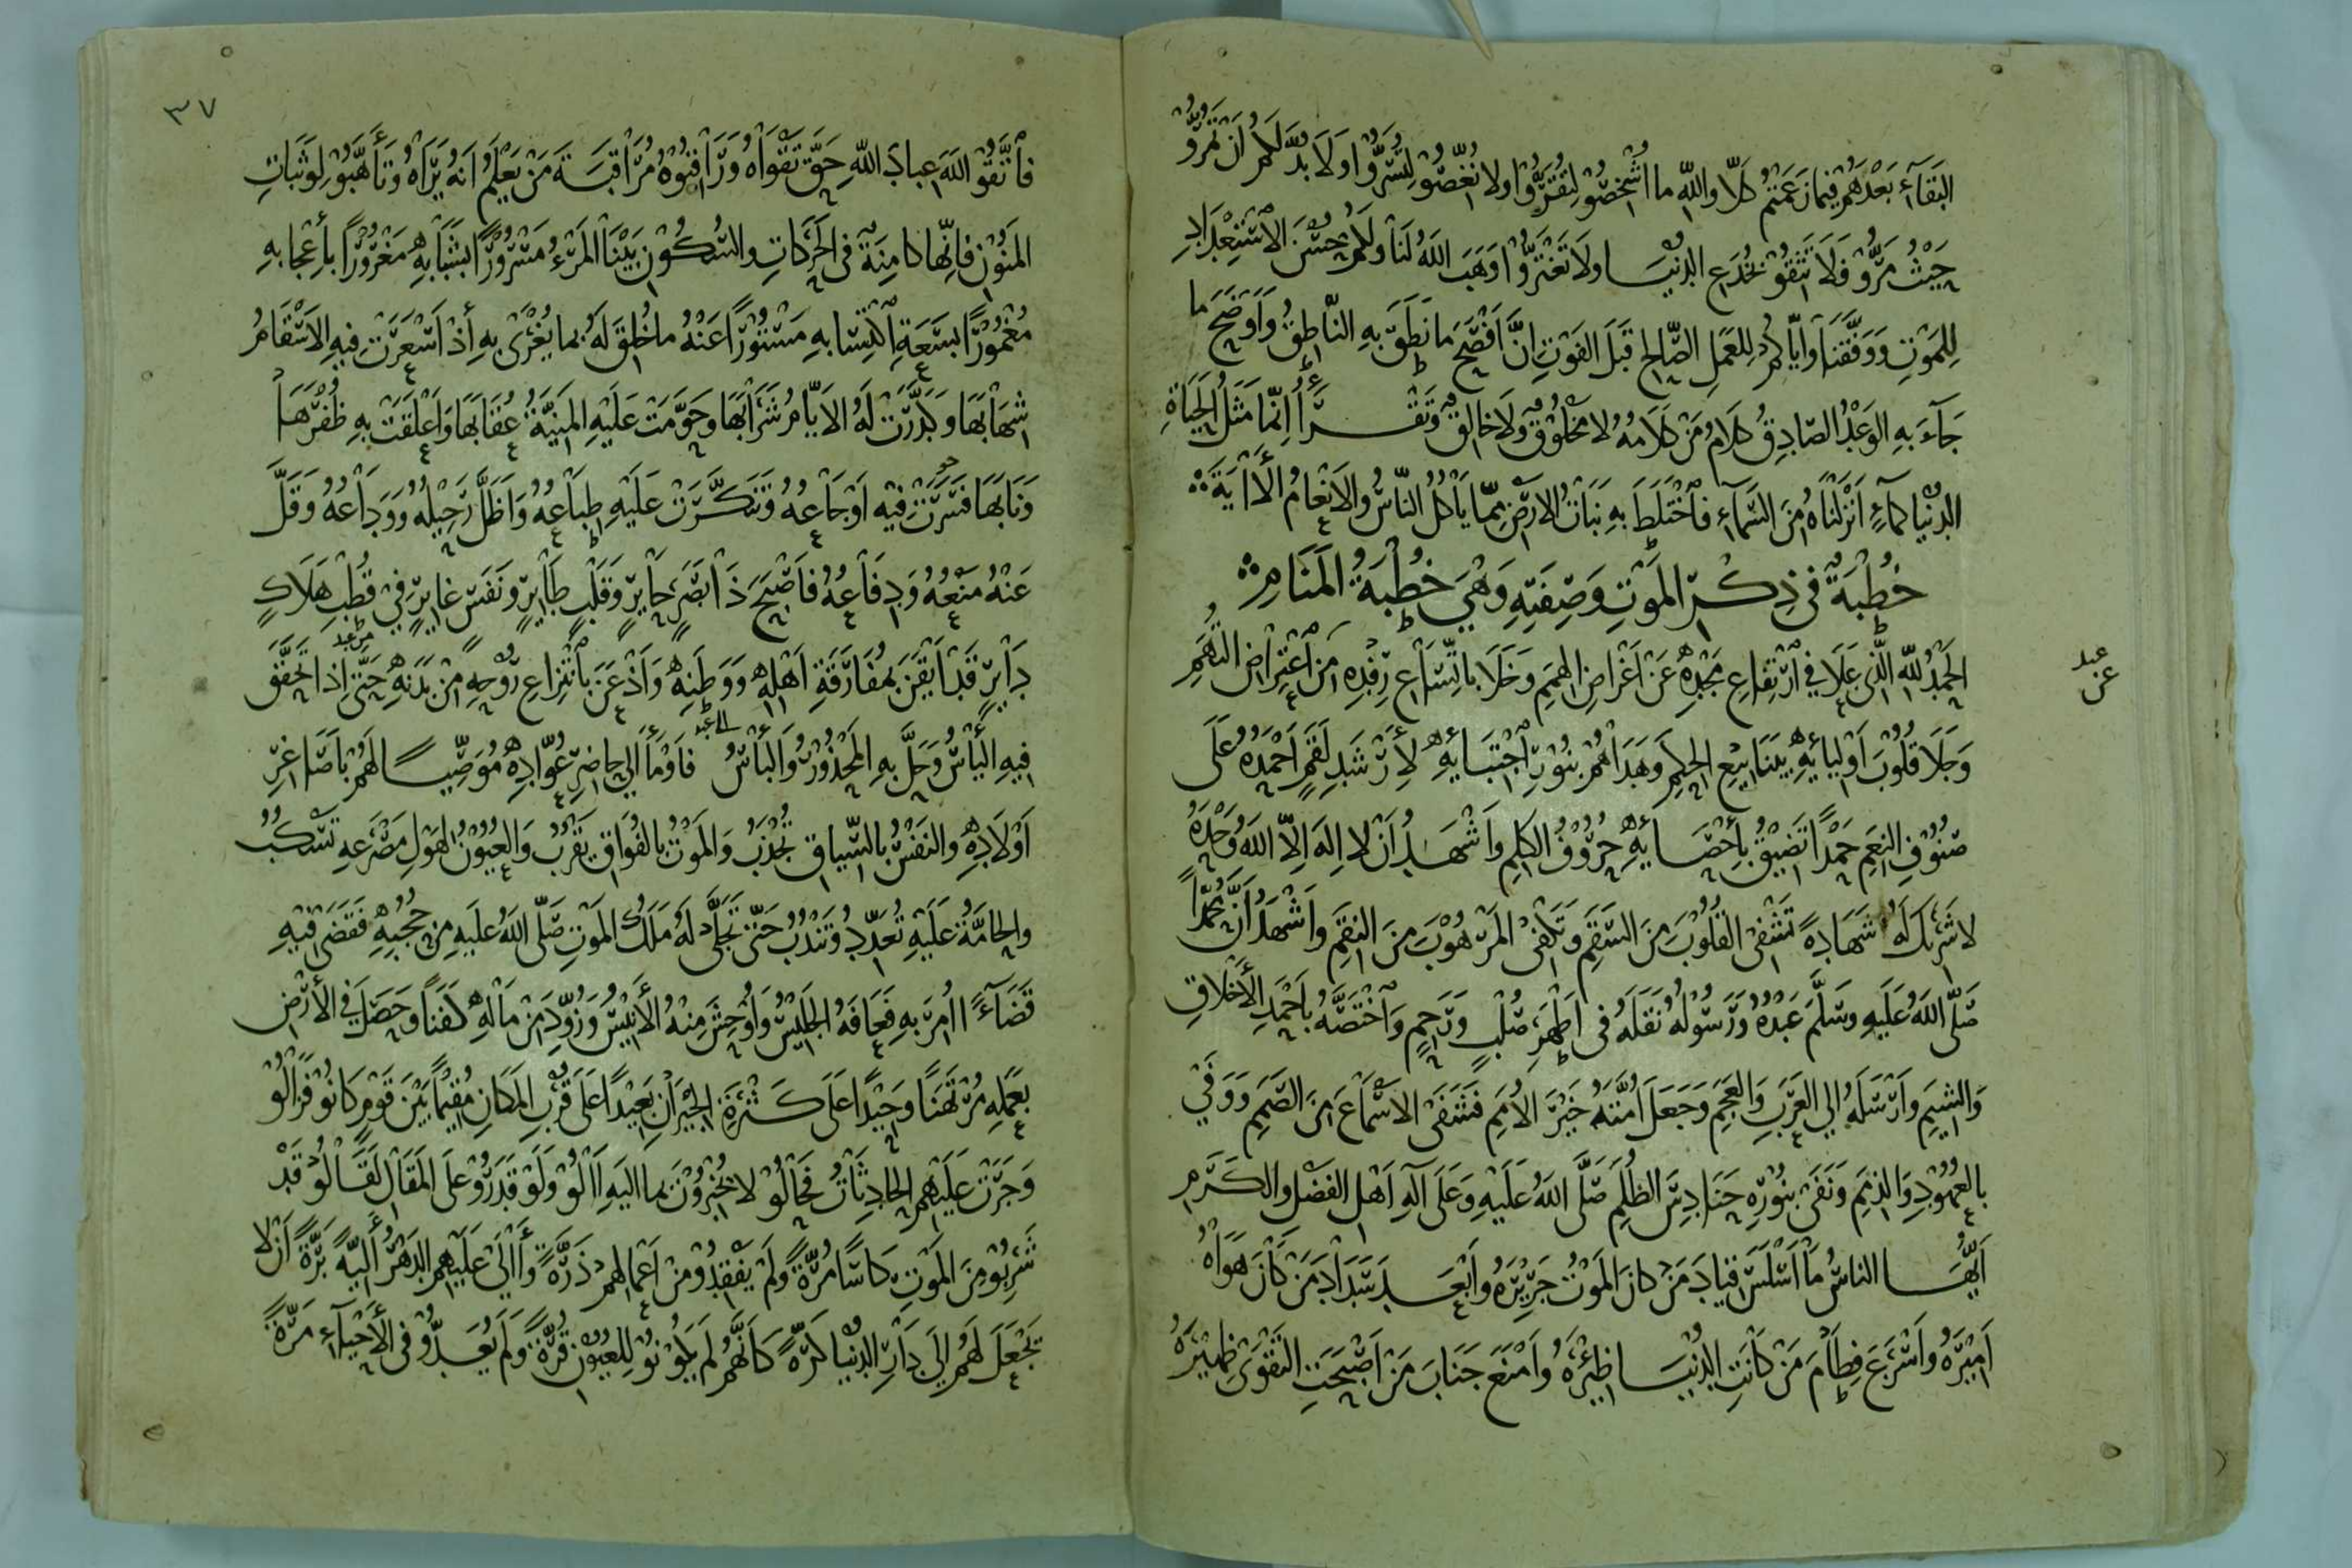 البَقَآءِ بَعْدَهُمْ فِيمَا زَعَمْتُمْ كَلَّا وَاللهِ مَا اُشْخِصُوْ لِتَقَرُّوْا وَلَا نُغِّصُوْ لِتُسَرُّوْا وَلَا بُدَّ لَكُمْ اَنْ تَمُرُّوْ
حَيْثُ مَرُّوْ فَلَا تَثِقُوْ بِخُدَعِ الدُّنْيَا وَلَا تَغْتَرُّوْا وَهَبَ اللهُ لَنَا وَلَكُمْ حُسْنَ الْاِسْتِعْدَادِ
لِلْمَوْتِ وَوَفَّقَنَا وَاِيَّاكُمْ لِلْعَمَلِ الصَّالِحِ قَبْلَ الفَوْتِ اِنَّ اَفْصَحَ مَا نَطَقَ بِهِ النَّاطِقُ وَاَوْضَحَ مَا
جَآءَ بِهِ الوَعْدُ الصَّادِقُ كَلَامُ مَنْ كَلَامُهُ لَا مَخْلُوْقٌ وَلَا خَالِقٌ وَتَقْرَأُ اِنَّمَا مَثَلُ الْحَيَاةِ
الدُّنْيَا كَمَآءٍ اَنْزَلْنَاهُ مِنَ السَّمَآءِ فَاخْتَلَطَ بِهِ نَبَاتُ الْاَرْضِ مِمَّا يَأْكُلُ النَّاسُ وَالْاَنْعَامُ الْاَايَةَ
خُطْبَةٌ فِي ذِكْرِ المَوْتِ وَصِفَتِهِ وَهِيَ خُطْبَةُ المَنَامِ
الحَمْدُ لِلّٰهِ الَّذِي عَلَا فِي ارْتِفَاعِ مَجْدِهِ عَنْ اَغْرَاضِ الهِمَمِ وَخَلَا بِاتِّسَاعِ رِفْدِهِ مِنَ اعْتِرَاضِ التُّهَمِ
عبد
عن
وَجَلَا قُلُوْبَ اَوْلِيَائِهِ بِيَنَابِيْعِ الحِكَمِ وَهَدَاهُمْ بِنُوْرِ اجْتِبَائِهِ لِأَرْشَدِ لَقَمٍ اَحْمَدُهُ عَلَى
صُنُوْفِ النِّعَمِ حَمْدًا تَضِيْقُ بِاِحْصَائِهِ حُرُوْفُ الكَلِمِ وَاَشْهَدُ اَنْ لَا اِلٰهَ اِلَّا اللهُ وَحْدَهُ
لَا شَرِيْكَ لَهُ شَهَادَةً تَشْفِي القُلُوْبَ مِنَ السَّقَمِ وَتَكْفِي المَرْهُوْبَ مِنَ النِّقَمِ وَاَشْهَدُ اَنَّ مُحَمَّدًا
صَلَّى اللهُ عَلَيْهِ وَسَلَّمَ عَبْدُهُ وَرَسُوْلُهُ نَقَلَهُ فِي اَطْهَرِ صُلْبٍ وَرَحِمٍ وَاخْتَصَّهُ بِاَحْمَدِ الْأَخْلَاقِ
وَالشِّيَمِ وَاَرْسَلَهُ اِلَى العَرَبِ وَالعَجَمِ وَجَعَلَ اُمَّتَهُ خَيْرَ الْاُمَمِ فَشَفَى الْاَسْمَاعَ مِنَ الصَّمَمِ وَوَفَى
بِالعُهُوْدِ وَالذِّمَمِ وَنَفَى بِنُوْرِهِ حَنَادِسَ الظُّلَمِ صَلَّى اللهُ عَلَيْهِ وَعَلَى آلِهِ اَهْلِ الفَضْلِ وَالْكَرَمِ
اَيُّهَا النَّاسُ مَا اَسْلَسَ قِيَادَ مَنْ كَانَ المَوْتُ جَرِيْرَهُ وَاَبْعَدَ سَدَادَ مَنْ كَانَ هَوَاهُ
اَمِيْرَهُ وَاَسْرَعَ فِطَامَ مَنْ كَانَتِ الدُّنْيَا ظِئْرَهُ وَاَمْنَعَ جَنَابَ مَنْ اَصْبَحَتِ التَّقْوَى ظَهِيْرَهُ
٣٧
فَاتَّقُوْ اللهَ عِبَادَ اللهِ حَقَّ تَقْوَاهُ وَرَاقِبُوْهُ مُرَاقَبَةَ مَنْ يَعْلَمُ اَنَّهُ يَرَاهُ وَتَأَهَّبُوْ لِوَثَبَاتِ
المَنُوْنِ فَاِنَّهَا كَامِنَةٌ فِي الحَرَكَاتِ وَالسُّكُوْنِ بَيْنَا المَرْءُ مَسْرُوْرًا بِشَبَابِهِ مَغْرُوْرًا بِاِعْجَابِهِ
مَغْمُوْرًا بِسَعَةِ اكْتِسَابِهِ مَسْتُوْرًا عَنْهُ مَا خُلِقَ لَهُ بِمَا يُغْرَى بِهِ اِذْ اَسْعَرَتْ فِيهِ الْاَسْقَامُ
شِهَابَهَا وَكَدَّرَتْ لَهُ الْاَيَّامُ شَرَابَهَا وَحَوَّمَتْ عَلَيْهِ المَنِيَّةُ عُقَابَهَا وَاَعْلَقَتْ بِهِ ظُفْرَهَا
وَنَابَهَا فَسَرَتْ فِيْهِ اَوْجَاعُهُ وَتَنَكَّرَتْ عَلَيْهِ طِبَاعُهُ وَاَظَلَّ رَحِيْلُهُ وَوَدَاعُهُ وَقَلَّ
عَنْهُ مَنْعُهُ وَدِفَاعُهُ فَاَصْبَحَ ذَا بَصَرٍ حَايِرٍ وَقَلْبٍ طَايِرٍ وَنَفَسٍ غَابِرٍ فِي قُطْبِ هَلَاكٍ
دَايِرٍ قَدْ اَيْقَنَ بِمُفَارَقَةِ اَهْلِهِ وَوَطَنِهِ وَاَذْعَنَ بِانْتِزَاعِ رُوْحِهِ مِنْ بَدَنِهِ حَتَّى اِذَا تَحَقَّقَ
فِيهِ اليَأْسُ وَحَلَّ بِهِ المَحْذُوْرُ وَالبَأْسُ فَاَوْمَأَ اِلَى حَاضِرِ عُوَّادِهِ مُوَصِّيًا لَهُمْ بِاَصَاغِرِ
اَوْلَادِهِ وَالنَّفْسُ بِالسِّيَاقِ تُجْذَبُ وَالمَوْتُ بِالفُوَاقِ يَقْرُبُ وَالعُيُوْنُ لِهَوْلِ مَصْرَعِهِ تَسْكُبُ
وَالحَامَّةُ عَلَيْهِ تُعَدِّدُ وَتَنْدُبُ حَتَّى تَجَلَّى لَهُ مَلَكُ المَوْتِ صَلَّى اللهُ عَلَيْهِ مِنْ حُجُبِهِ فَقَضَى فِيْهِ
قَضَآءً اُمِرَ بِهِ فَعَافَهُ الجَلِيْسُ وَاَوْحَشَ مِنْهُ الْاَنِيْسُ وَزُوِّدَ مِنْ مَالِهِ كَفَنًا وَحَصَلَ فِي الْاَرْضِ
بِعَمَلِهِ مُرْتَهَنًا وَحِيْدًا عَلَى كَثْرَةِ الْجِيْرَانِ بَعِيْدًا عَلَى قُرْبِ المَكَانِ مُقِيْمًا بَيْنَ قَوْمٍ كَانُوْ فَزَالُوْ
وَجَرَتْ عَلَيْهِمِ الحَادِثَاتُ فَحَالُوْ لَا يُخْبِرُوْنَ بِمَا اِلَيْهِ اٰلُوْ وَلَوْ قَدَرُوْ عَلَى المَقَالِ لَقَالُوْ قَدْ
شَرِبُوْ مِنَ المَوْتِ كَاْسًا مُرَّةً وَلَمْ يَفْقِدُوْ مِنْ اَعْمَالِهِمْ ذَرَّةً وَاٰلَى عَلَيْهِمِ الدَّهْرُ اَلِيَّةً بَرَّةً اَنْ لَا
يَجْعَلَ لَهُمْ اِلَى دَارِ الدُّنْيَا كَرَّةً كَاَنَّهُمْ لَمْ يَكُوْنُوْ لِلْعُيُوْنِ قُرَّةً وَلَمْ يُعَدُّوْ فِي الْاَحْيَآءِ مَرَّةً